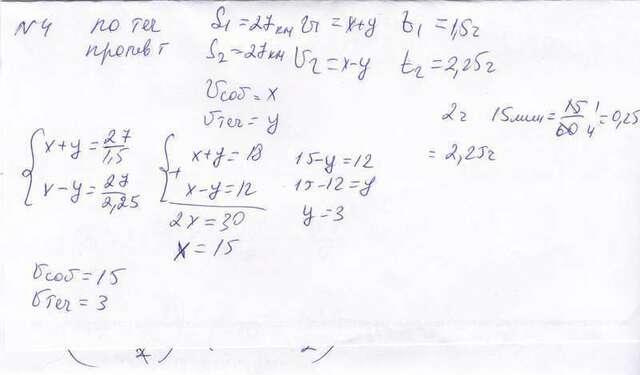 №4 по теч S₁ = 27км V₁ = x+y t₁ = 1,5г
против т S₂ = 27км V₂ = x-y t₂ = 2,25г
Vсоб = x
Vтеч = y
2г 15мин = 15/60 1/4 = 0,25
= 2,25г
x+y = 27/1,5
x-y = 27/2,25
x+y = 18
+ x-y = 12
2x = 30
x = 15
15-y = 12
15-12 = y
y = 3
Vсоб = 15
Vтеч = 3